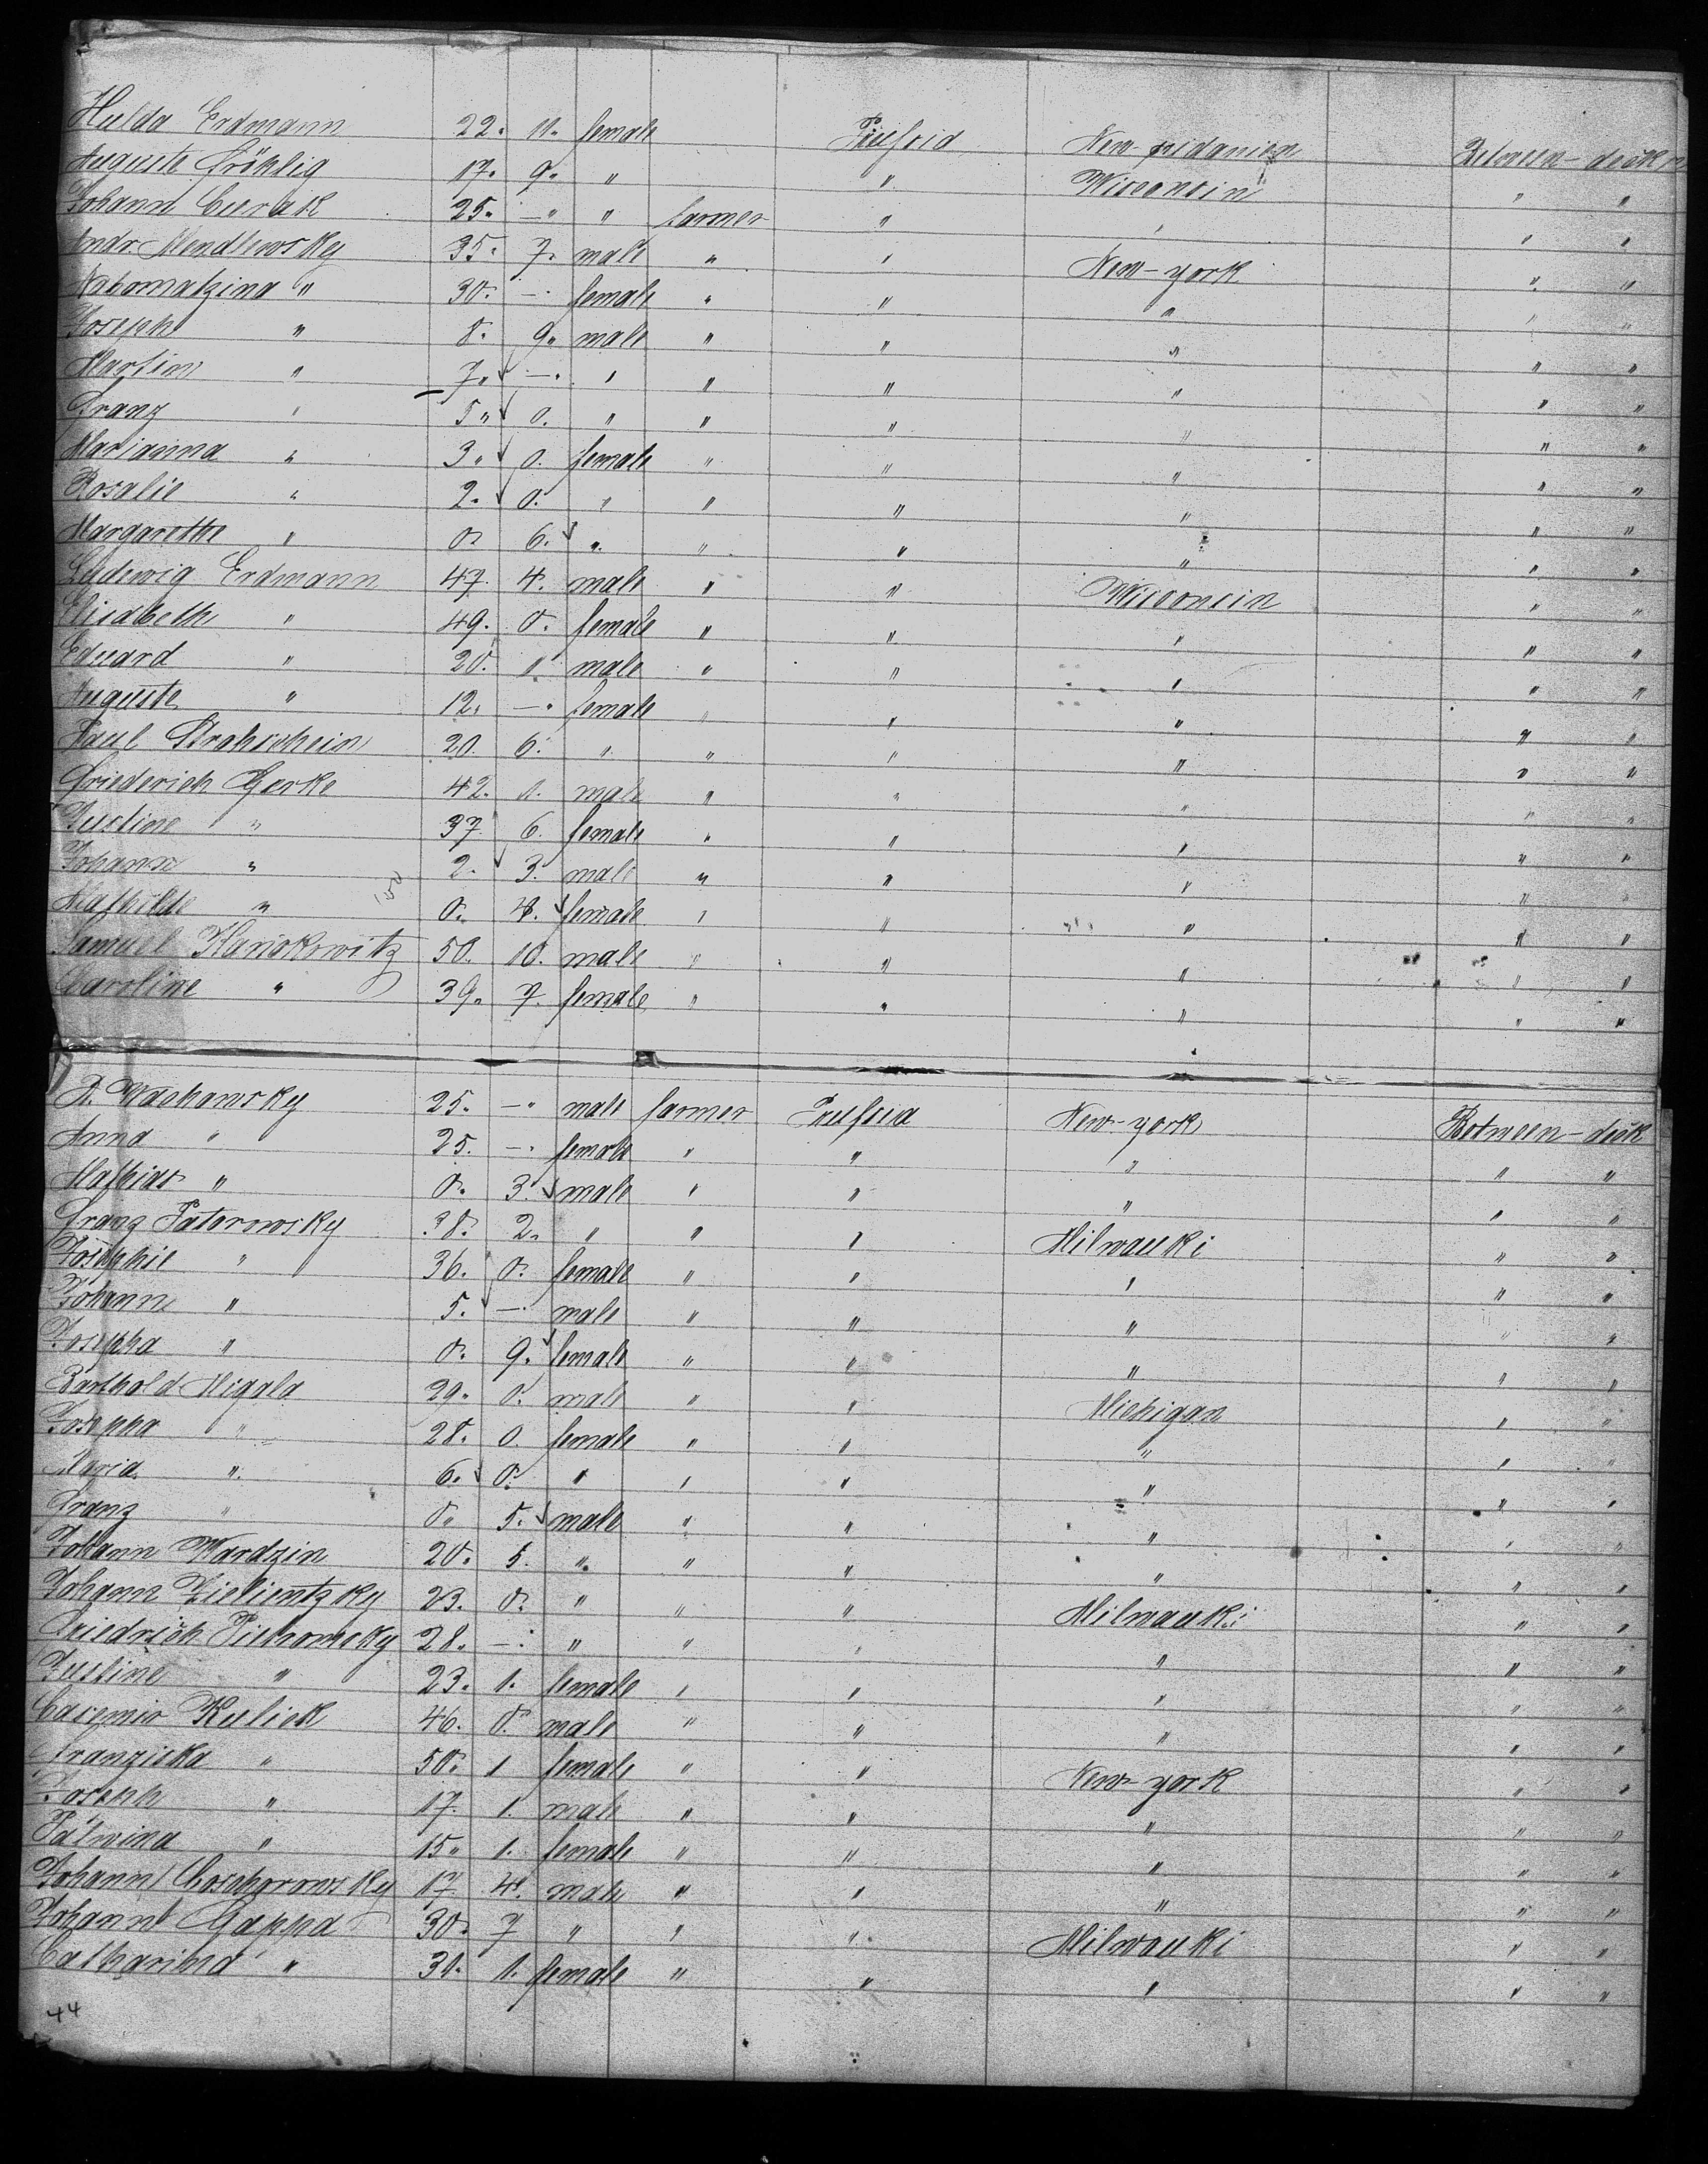 Hulda Erdmann 22. 11. female Preussia New Between-deck
Auguste Fröhlig 17. 9. " " Wisconsin " "
Johann 25. — " " farmer " " " "
Andr. Mendlewsky 35. 7. male " " New-york " "
" 30. — female " " " " "
Joseph " 8. 9. male " " " " "
Martin " 7. — " " " " " "
Franz " 5. 0. " " " " " "
Marianna " 3. 0. female " " " " "
Rosalie " 2. 0. " " " " " "
Margarethe " 0. 6. " " " " " "
Ludewig Erdmann 47. 4. male " " Wisconsin " "
Elisabeth " 49. 0. female " " " " "
Eduard " 20. " male " " " " "
Auguste " 12. — female " " " " "
Paul Strohschein 20. 6. " " " " " "
Friederich Gerke 42. 1. male " " " " "
Justine " 37. 6. female " " " " "
Johann " 2. 3. male " " " " "
Mathilde " 0. 4. female " " " " "
Samuel 50. 10. male " " " " "
Caroline " 39. 7. female " " " " "
25. — male farmer Preussia New-york Between-deck
Anna " 25. — female " " " " "
Mathias " 0. 3. male " " " " "
Franz 38. 2. " " " Milwauki " "
Josephie " 36. 0. female " " " " "
Johann " 5. — male " " " " "
Josepha " 0. 9. female " " " " "
Barthold Migala 29. 0. male " " Michigan " "
Josepha " 28. 0. female " " " " "
Maria " 6. 0. " " " " " "
Franz " 0. 5. male " " " " "
Johann Wardzin 20. 5. " " " " " "
Johann Zielientzky 23. 0. " " " Milwauki " "
Friedrich 28. — " " " " " "
Justine " 23. 1. female " " " " "
Casemir Kulick 46. 0. male " " " " "
Franziska " 50. 1 female " " New-york " "
Joseph " 17. 1. male " " " " "
" 15. 1. female " " " " "
Johann 17 4. male " " " " "
Johann Gappa 30. 7 " " " Milwauki " "
Catharina " 31. 1. female " " " " "
44